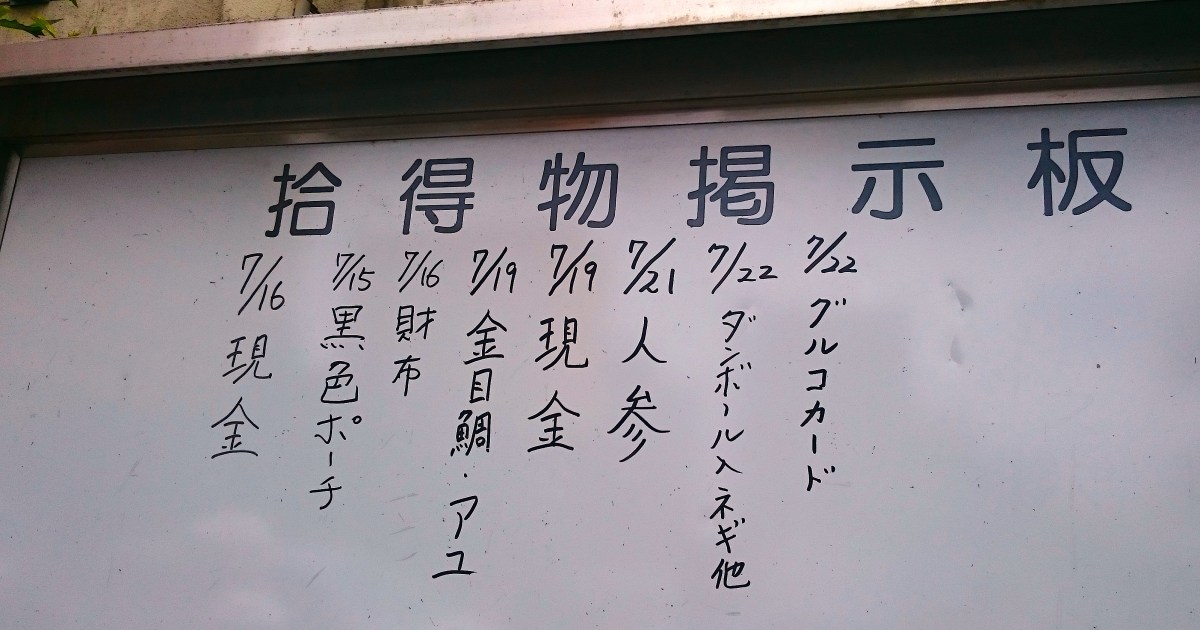 拾得物掲示板
7/22 グルコカード
7/22 ダンボール入ネギ他
7/21 人参
7/19 現金
7/19 金目鯛・アユ
7/16 財布
7/15 黒色ポーチ
7/16 現金